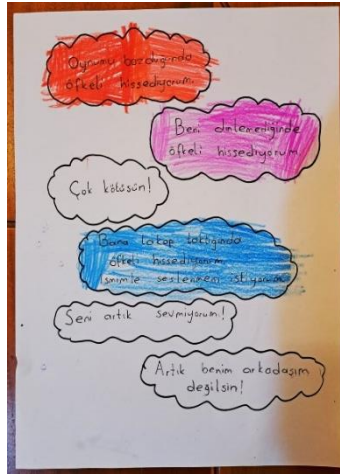 Oyunumu bozduğunda
öfkeli hissediyorum.
Beni dinlemediğinde
öfkeli hissediyorum
Çok kötüsün!
Bana lakap taktığında
öfkeli hissediyorum.
İsmimle seslenmeni istiyorum.
Seni artık sevmiyorum!
Artık benim arkadaşım
değilsin!